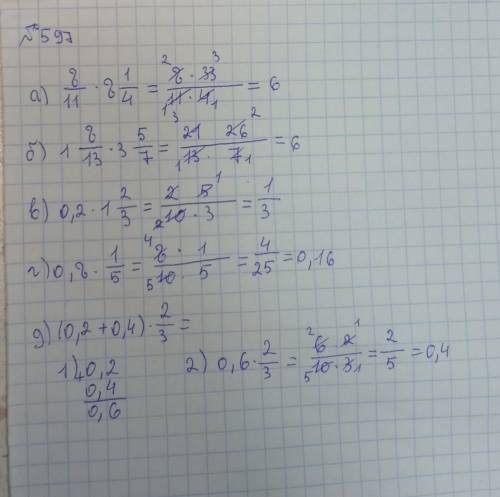 №597
а) 8/11 · 8 1/4 = 8 · 33 / 11 · 4 = 6
б) 1 8/13 · 3 5/7 = 21 26 / 13 · 7 = 6
в) 0,2 · 1 2/3 = 2 5 / 10 · 3 = 1/3
г) 0,8 · 1/5 = 8 · 1 / 10 · 5 = 4/25 = 0,16
д) (0,2 + 0,4) · 2/3 =
1) + 0,2
0,4
0,6
2) 0,6 · 2/3 = 6 2 / 10 · 3 = 2/5 = 0,4